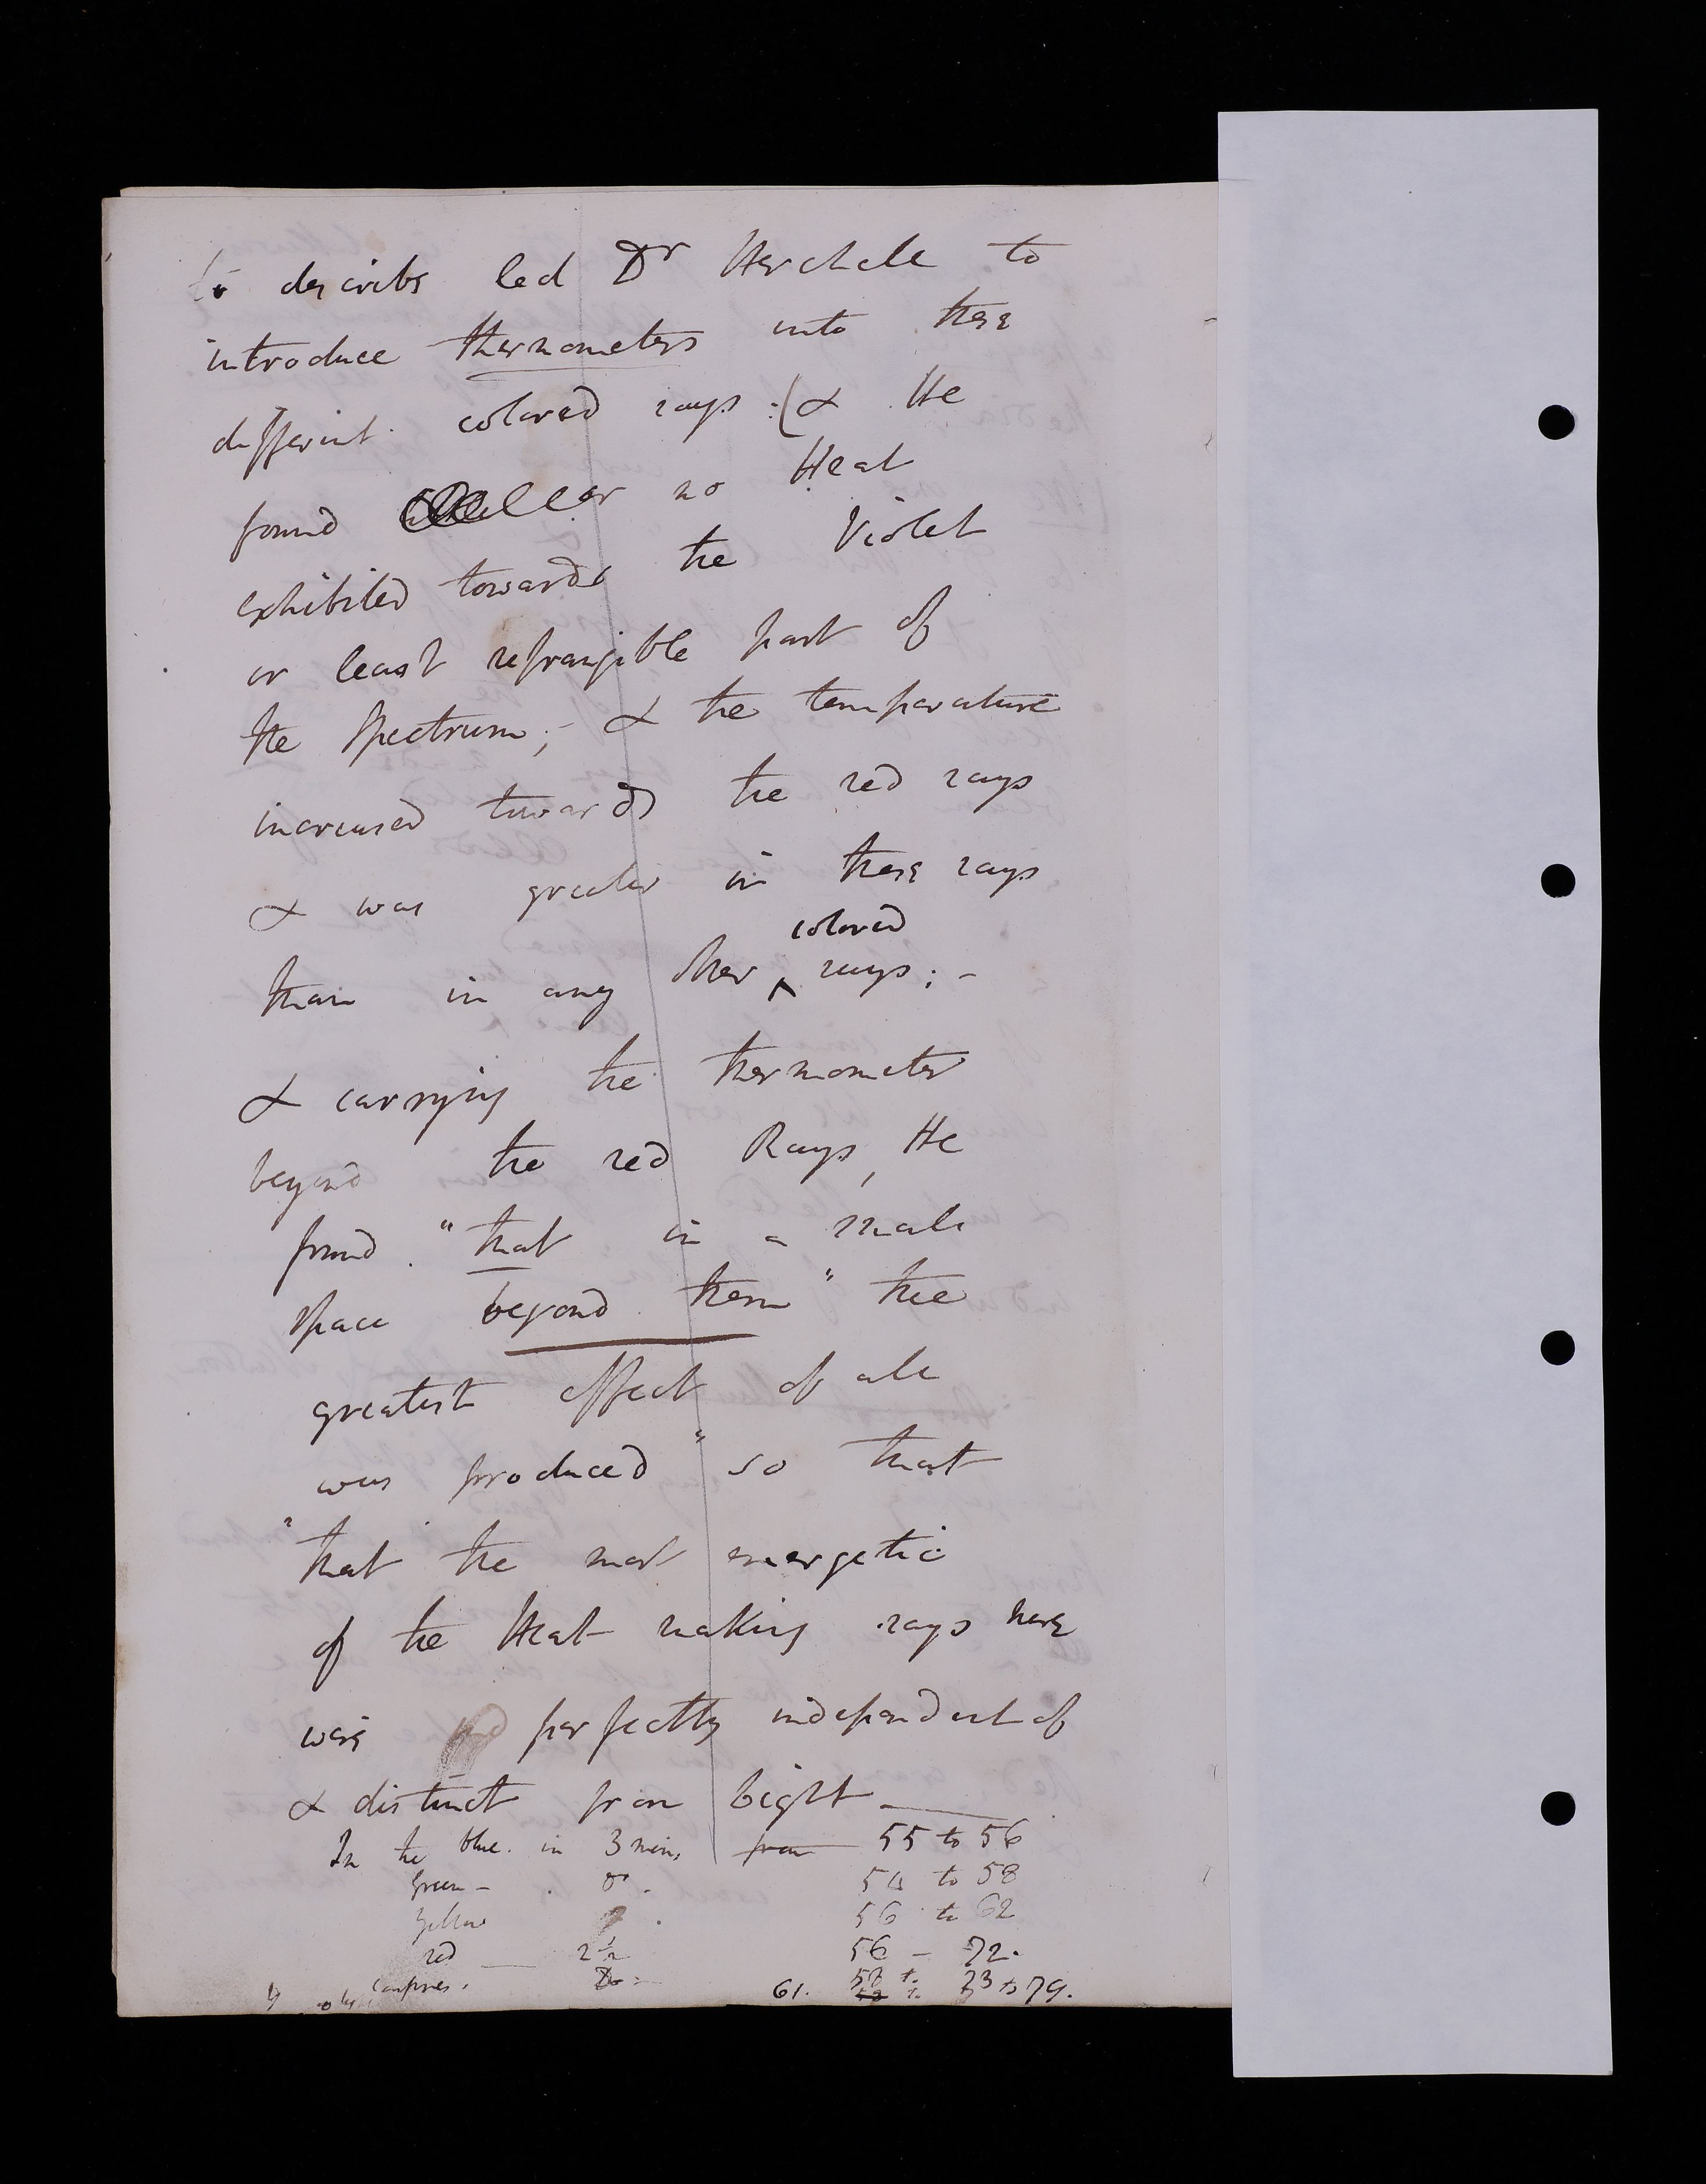 to describe led Dr Herchele to
introduce thermometers into these
different colored rays :( & He
found or no Heat
exhibited towards the Violet
or least refrangible part of
the Spectrum; - & the temperature
increased towards the red rays
& was greater in these rays
colored
than in any other ^ rays; -
& carrying the thermometer
beyond the red Rays, He
found "that in a small
space beyond them" the
greatest effect of all
was produced" so that
"that the most energetic
of the Heat making rays here
were perfectly independent of
& distinct from Light
In the blue. in 3 min, from 55 to 56
Green - 54 to 58
Yellow 56 to 62
red 2 1/2 56 - 72.
confines. Do 61. 58 to 73 to 79.